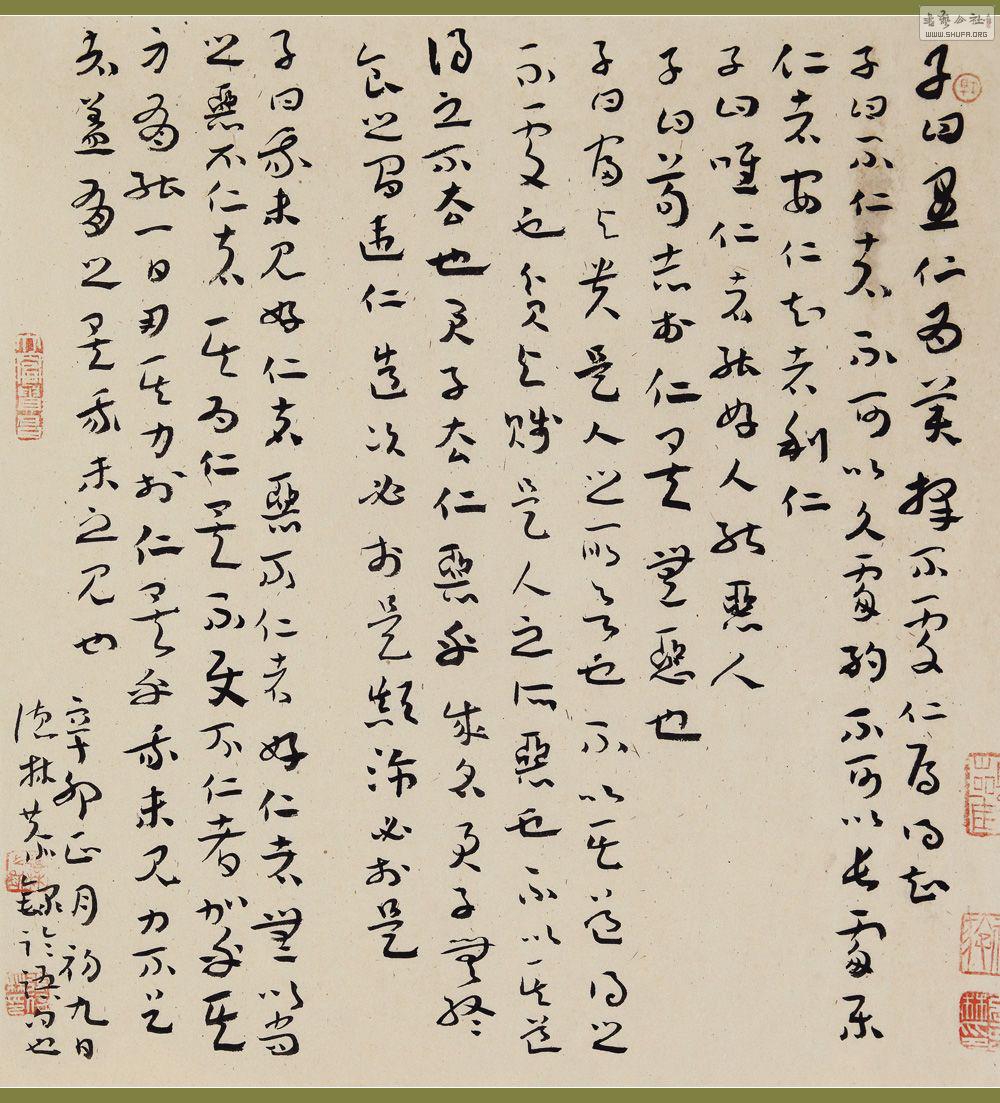 子曰里仁為美擇不處仁焉得知
子曰不仁者不可以久處約不可以長處樂
仁者安仁知者利仁
子曰唯仁者能好人能惡人
子曰苟志於仁矣無惡也
子曰富與貴是人之所欲也不以其道得之
不處也貧與賤是人之所惡也不以其道
得之不去也君子去仁惡乎成名君子無終
食之間違仁造次必於是顛沛必於是
子曰我未見好仁者惡不仁者好仁者無以尚
之惡不仁者其為仁矣不使不仁者加乎其
身有能一日用其力於仁矣乎我未見力不足
者蓋有之矣我未之見也
辛卯正月初九日
德林恭錄論語句也
書藝公社
WWW.SHUFA.ORG